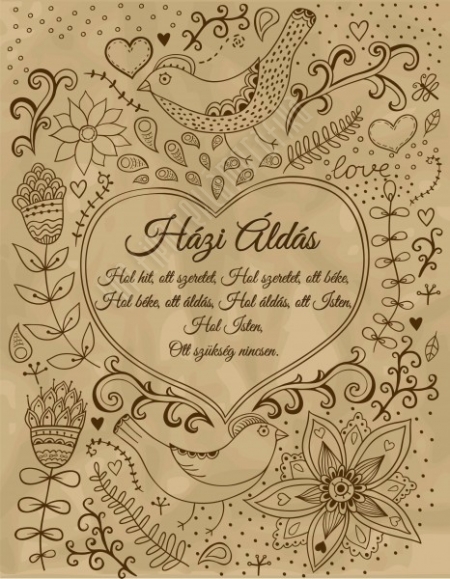 love
Házi Áldás
Hol hit, ott szeretet, Hol szeretet, ott béke,
Hol béke, ott áldás, Hol áldás, ott Isten,
Hol Isten,
Ott szükség nincsen.